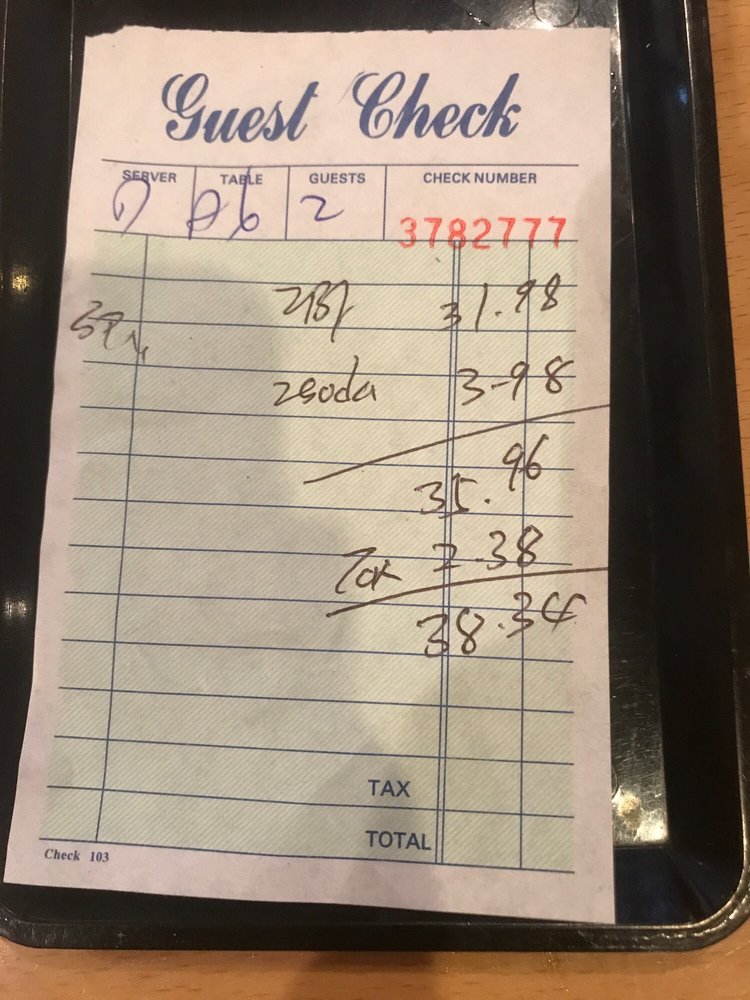 Guest Check
SERVER TABLE GUESTS CHECK NUMBER
2 3782777
31.98
2 soda 3.98
35.96
Tax 2.38
38.34
TAX
TOTAL
Check 103